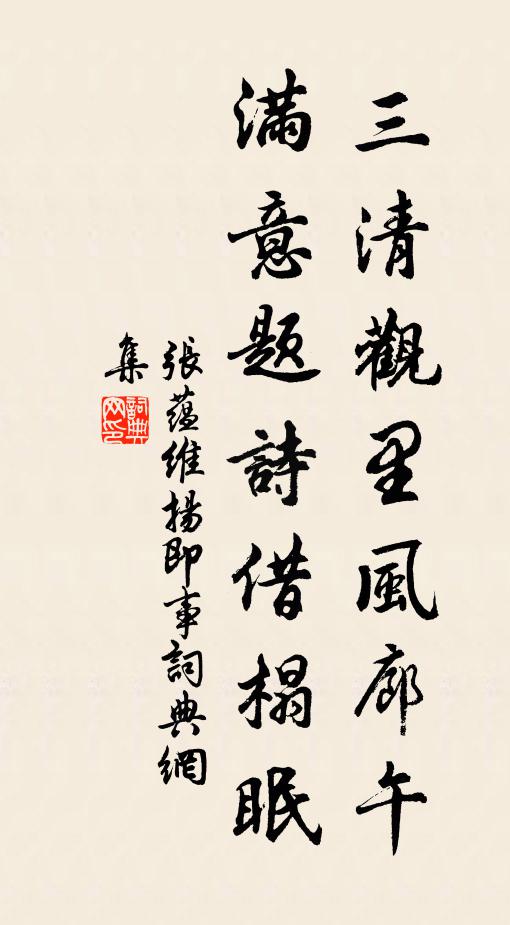 三清觀里風廊午
滿意題詩借榻眠
張藴維揚即事詞典網
集
詞典網印